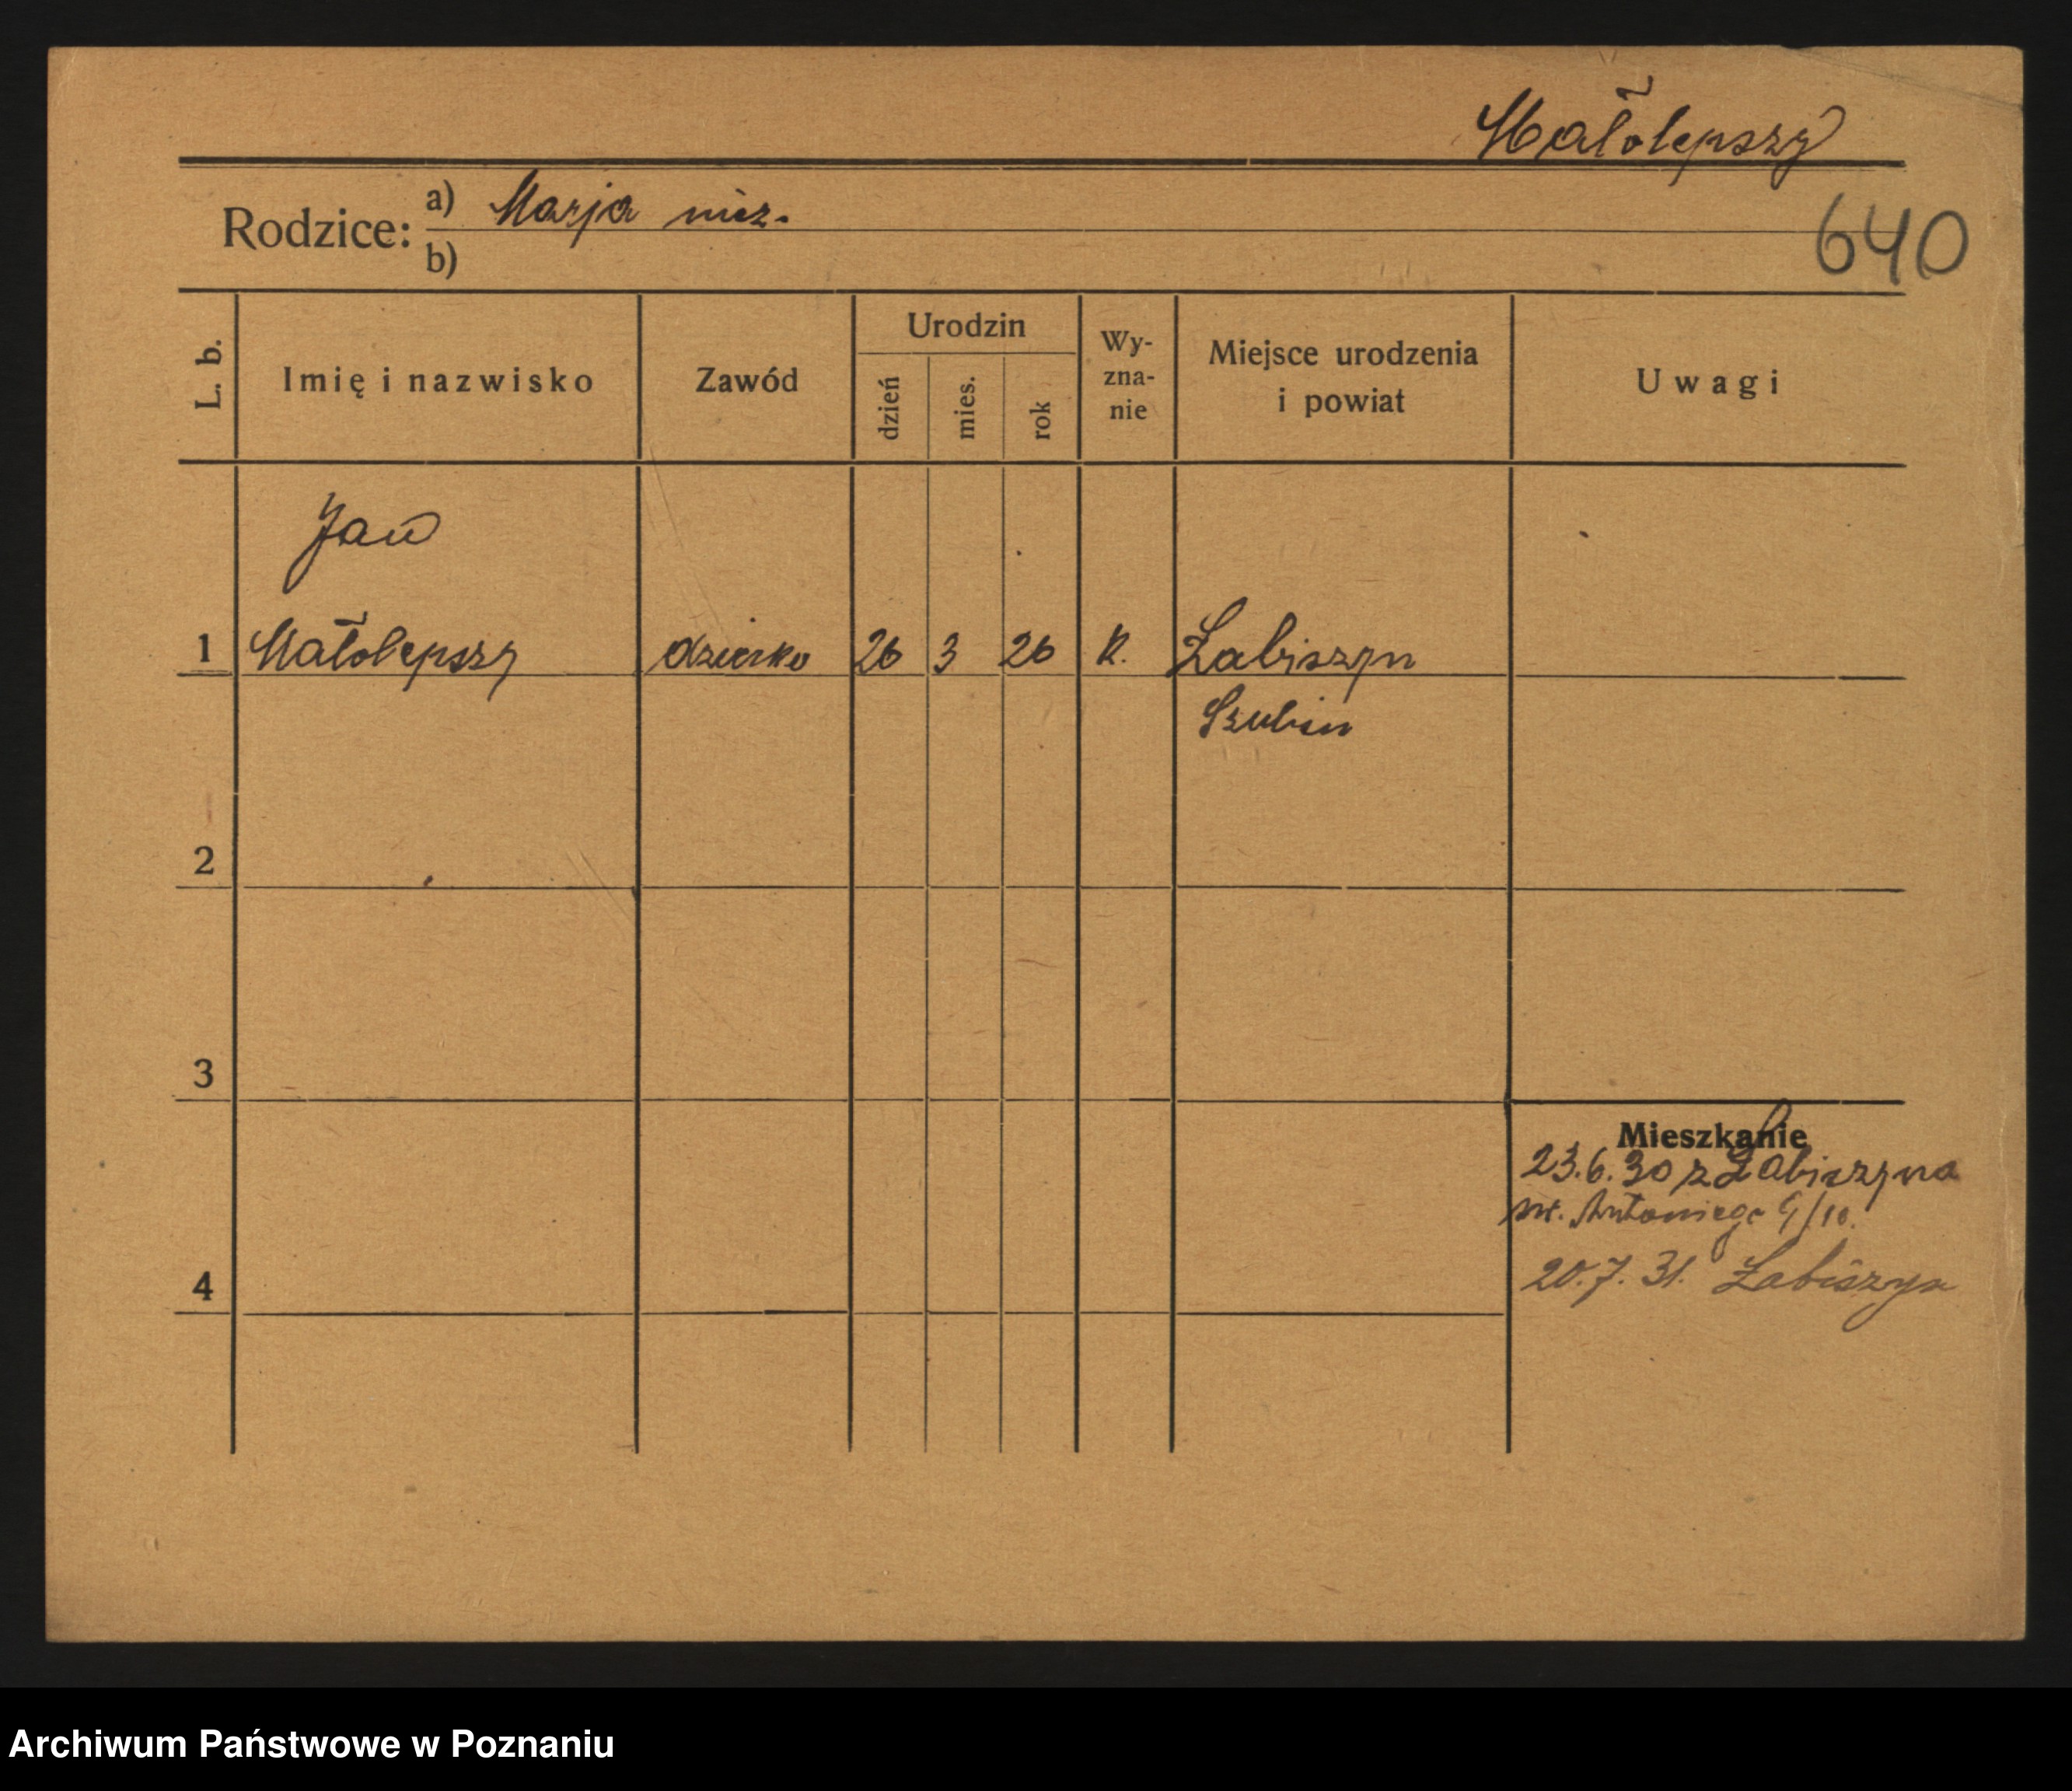 Małolepszy
Rodzice: a) Marja niez.
b)
640
L. b.
Imię i nazwisko
Zawód
Urodzin
dzień
mies.
rok
Wy-
zna-
nie
Miejsce urodzenia
i powiat
Uwagi
Jan
1 Małolepszy dziecko 26 3 26 k. Łabiszyn
Szubin
2
3
Mieszkanie
23.6.30 z Łabiszyna
św. Antoniego 9/10.
4
20.7.31. Łabiszyn
Archiwum Państwowe w Poznaniu